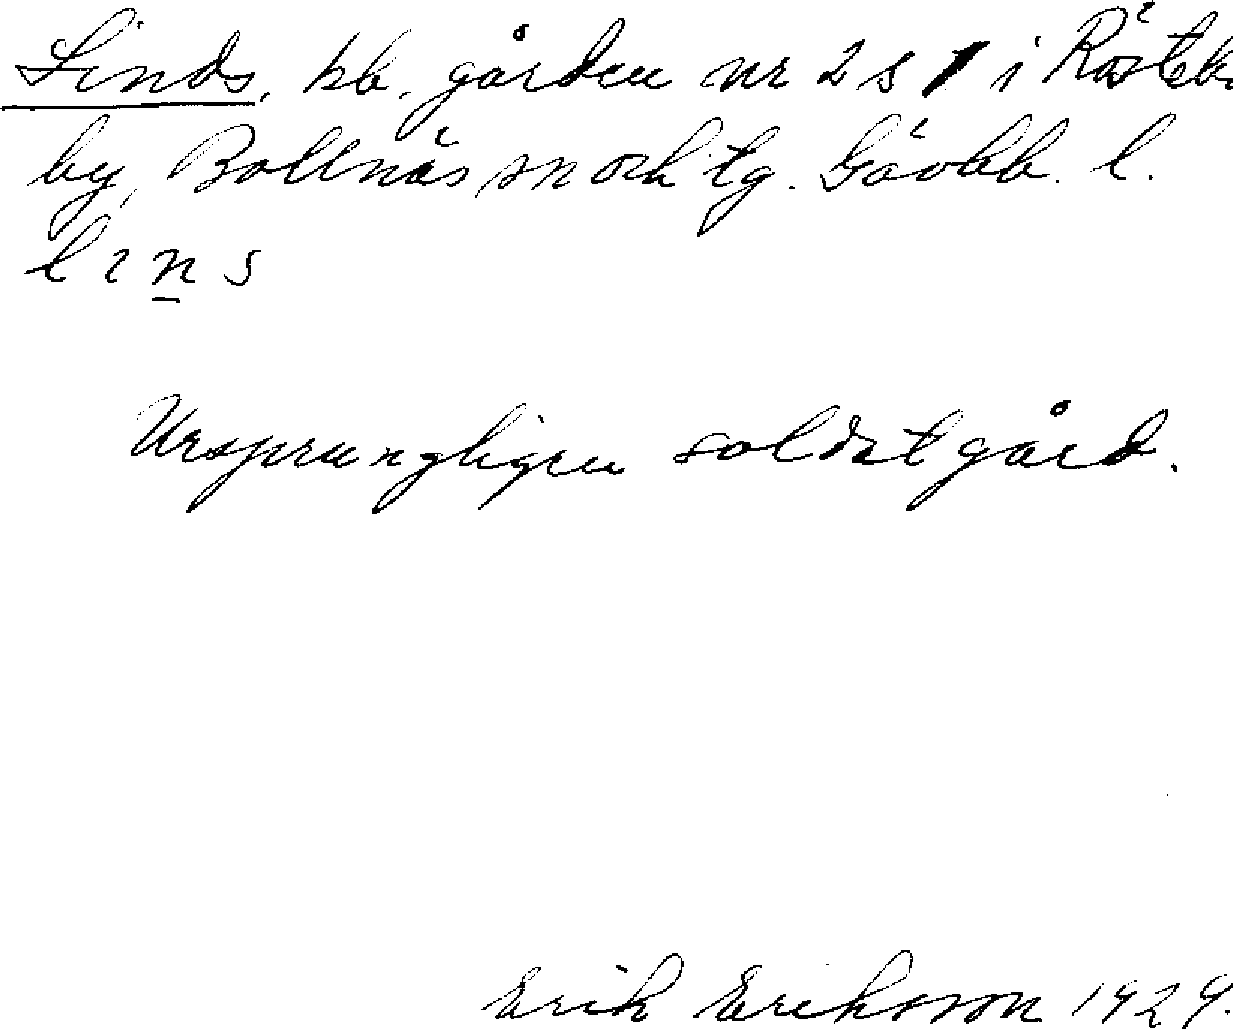 Linds, bb. gården nr 2 s 1 i Röste
by, Bollnäs sn och tg. Gävlb. l.
lins
Ursprungligen soldatgård.
Erik Eriksson 1929.